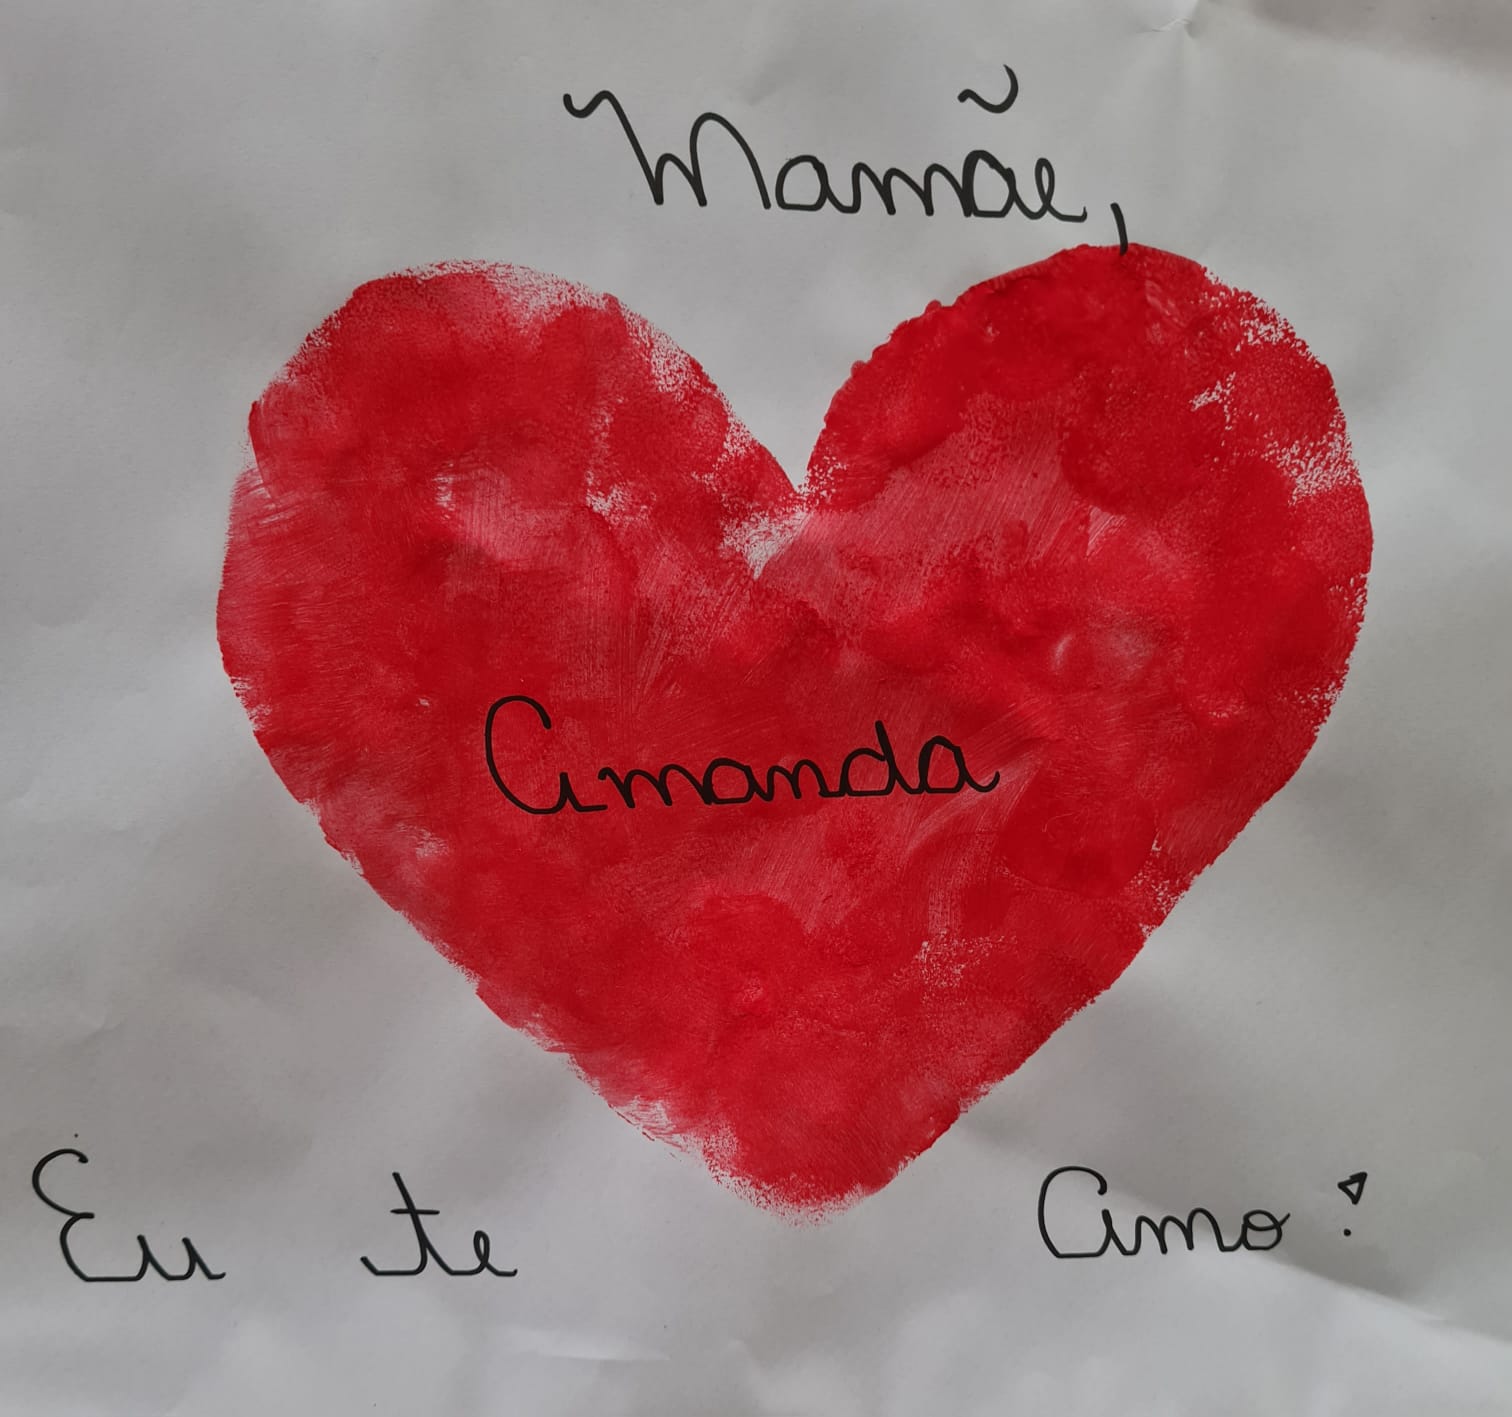 Mamãe,
Amanda
Eu te Amo!